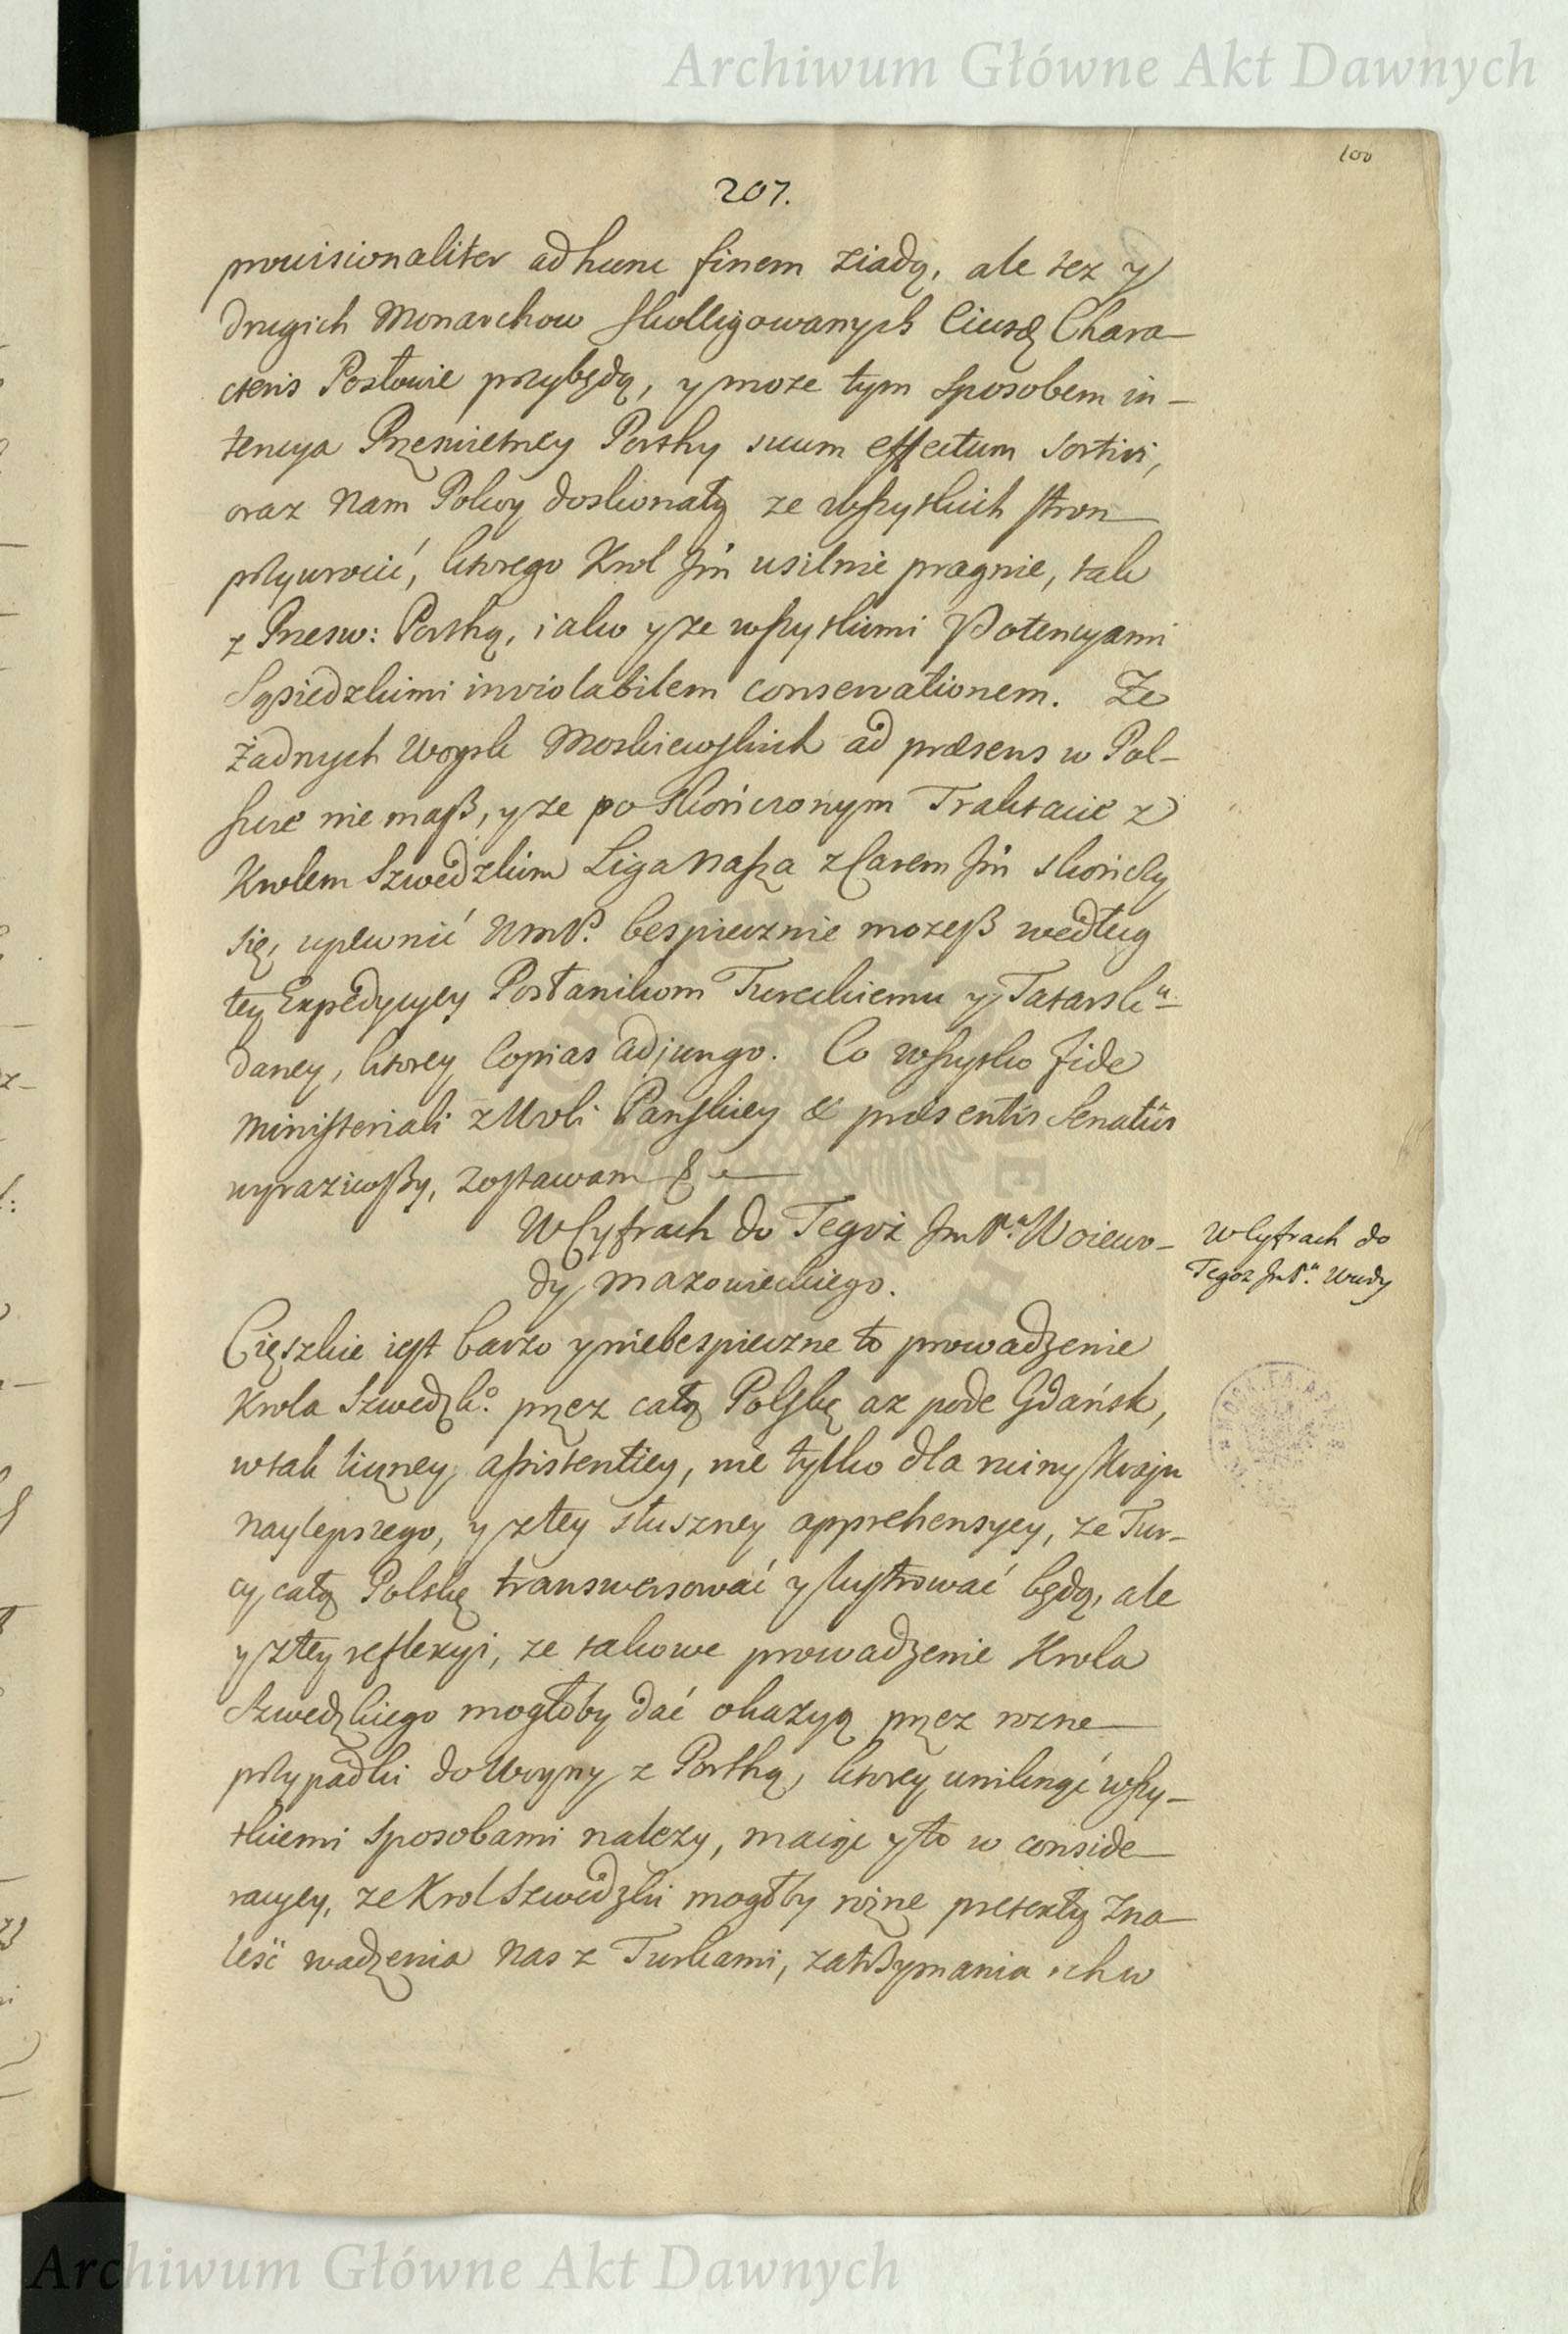 Archiwum Główne Akt Dawnych
100
207.
prouisionaliter ad hunc finem ziadą, ale tez y
drugich Monarchow skolligowanych Eiusdę Chara-
cteris Posłowie przybędą, y moze tym sposobem in-
tencya Przeswietney Porthy suum effectum sortiri,
oraz Nam Pokoy doskonały ze wszystkich stron
przywrocić, ktorego Krol Jm usilnie pragnie, tak
z Przesw: Porthą, iako y ze wszystkiemi Potencyami
Sąsiedzkimi inviolabilem conservationem. Ze
żadnych Woysk Moskiewskich ad præsens w Pol-
szcze nie masz, y ze po skończonym Traktacie z
Krolem Szwedzkim Liga Nasza z Carem Jm skończy
się, upewnić WmP. bespiecznie mozesz według
tey Expedycyey Posłanikom Tureckiemu y Tatarsk.u
daney, ktorey Copias adjungo. Co wszystko fide
ministeriali z Woli Panskiey & præsentis Senatûs
wyraziwszy, zostawam &c
W Cyfrach do Tegoż JmP.a Woiewo-
dy Mazowieckiego.
W Cyfrach do
Tegoz JmP.a Wwdy
Cięszkie iest barzo y niebespieczne to prowadzenie
Krola Szwedzk.o przez całą Polskę az pode Gdańsk,
w tak liczney assistentiey, nie tylko dla ruiny Kraju
naylepszego, y z tey słuszney apprehensyey, ze Tur-
cy całą Polskę transwersować y lustrować będą, ale
y z tey reflexyi, ze takowe prowadzenie Krola
Szwedzkiego mogłoby dać okazyą przez rozne
przypadki do Woyny z Porthą, ktorey uniknąć wszy-
stkiemi sposobami nalezy, maiąc y to w conside-
racyey, ze Krol Szwedzki mogłby rożne pretexty zna-
leść wadzenia nas z Turkami, zatrzymania ich w
Archiwum Główne Akt Dawnych